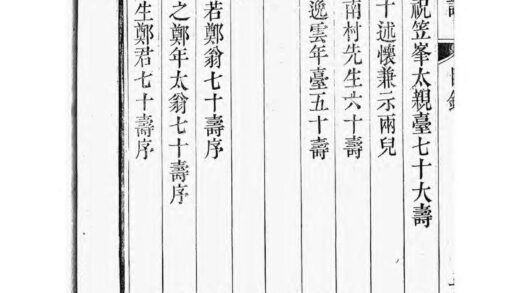 目錄
祝笠峯太親臺七十大壽
十述懷兼示兩兒
南村先生六十壽
逸雲年臺五十壽
若鄭翁七十壽序
之鄭年太翁七十壽序
生鄭君七十壽序